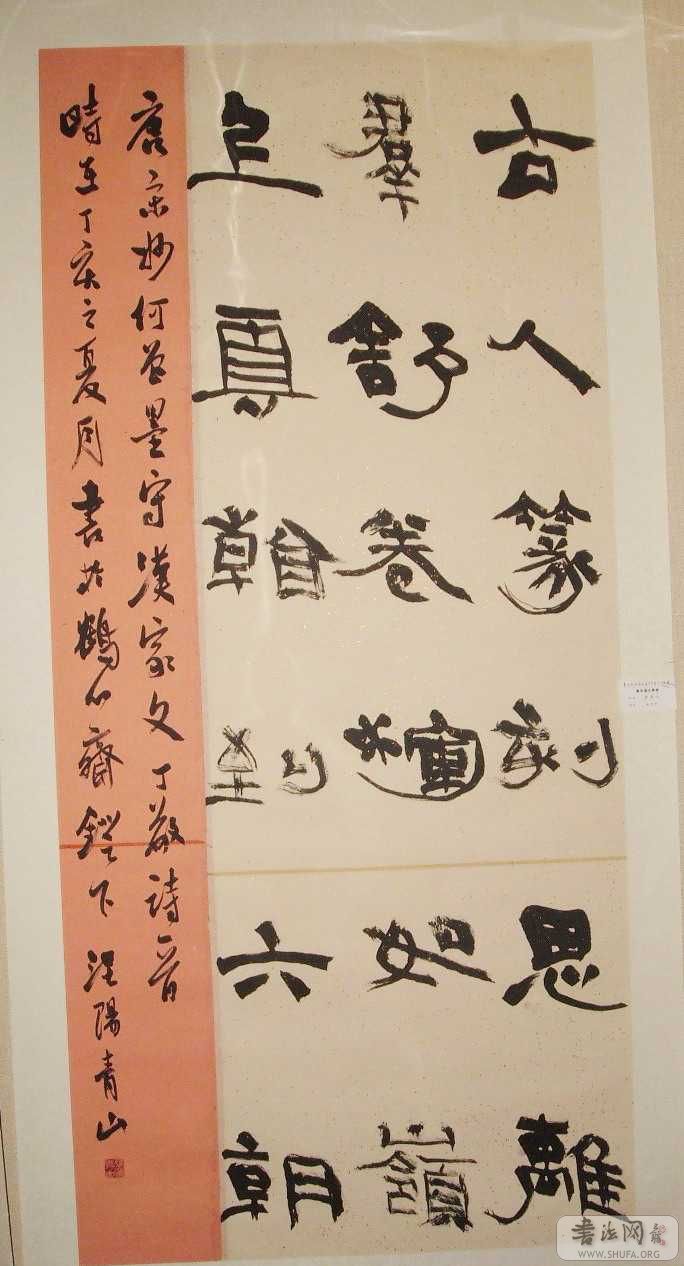 古人篆刻思離
羣舒卷渾如嶺
上雲看到六朝
唐宋妙何曾墨守漢家文丁敬詩一首
時在丁亥之夏月書於鶴心齋鐙下 涇陽青山
书法网
WWW.SHUFA.ORG